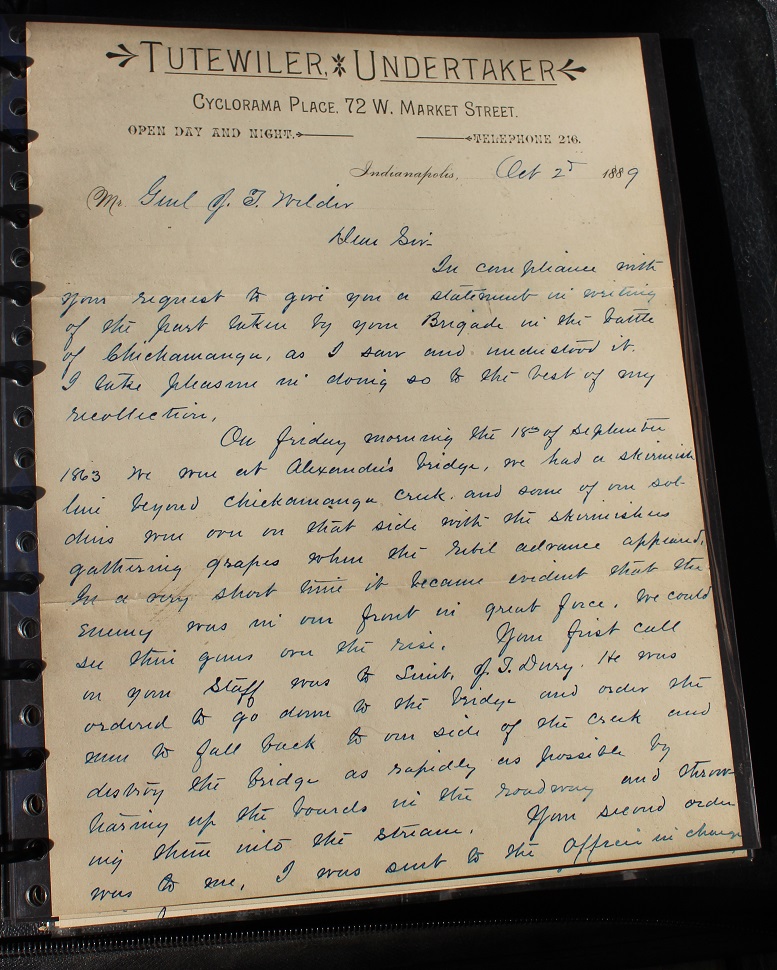 TUTEWILER, UNDERTAKER
CYCLORAMA PLACE, 72 W. MARKET STREET.
OPEN DAY AND NIGHT. TELEPHONE 216.
Indianapolis, Oct 2d 1889
Mr. Genl J. T. Wilder
Dear Sir
In compliance with
your request to give you a statement in writing
of the part taken by your Brigade in the battle
of Chickamauga, as I saw and understood it.
I take pleasure in doing so to the best of my
recollection.
On friday morning the 18th of September
1863 we was at Alexander's bridge, we had a skirmish
line beyond Chickamauga creek. and some of our sol-
diers was over on that side with the skirmishers
gathering grapes when the Rebil advance appeared.
In a very short time it became evident that the
Enemy was in our front in great force. We could
see their guns over the rise. Your first call
on your Staff was to Lieut. J. T. Dury. He was
ordered to go down to the bridge and order the
men to fall back to our side of the creek and
destroy the bridge as rapidly as possible by
tearing up the boards in the roadway and throw-
ing them into the stream. Your second order
was to me, I was sent to the officer in charge